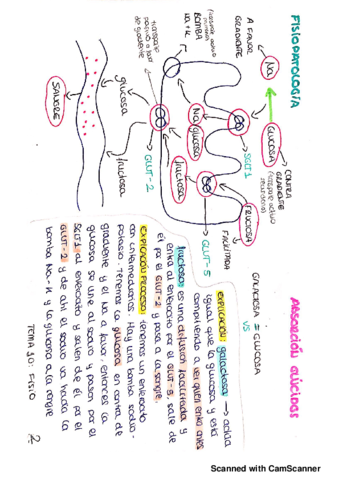 FISIOPATOLOGÍA
ABSORCIÓN GLÚCIDOS
GALACTOSA = GLUCOSA
VS
A FAVOR
GRADIENTE
Na
GLUCOSA
CONTRA
GRADIENTE
(transporte activo
secundario)
BOMBA
Na+K
SGLT1
Na
glucosa
fructosa
FRUCTOSA
FACILITADA
GLUT-5
transporte
pasivo a favor
de gradiente
glucosa
fructosa
GLUT-2
SANGRE
EXPLICACIÓN: galactosa → actúa
igual que la glucosa y está
compitiendo a ver quien entra antes
fructosa: es una difusión facilitada y
entra al enterocito por el GLUT-5, sale de
él por el GLUT-2 y pasa a la sangre.
EXPLICACIÓN PROCESO: Tenemos un enterocito
con intermediarios. Hay una bomba sodio-
potasio. Tenemos la glucosa en contra de
gradiente y el Na a favor, entonces la
glucosa se une al sodio y pasan por el
SGLT1 al enterocito y salen de él por el
GLUT-2 y de ahí el sodio va hacia la
bomba Na-K y la glucosa a la sangre
TEMA 30: FISIO
2
Scanned with CamScanner